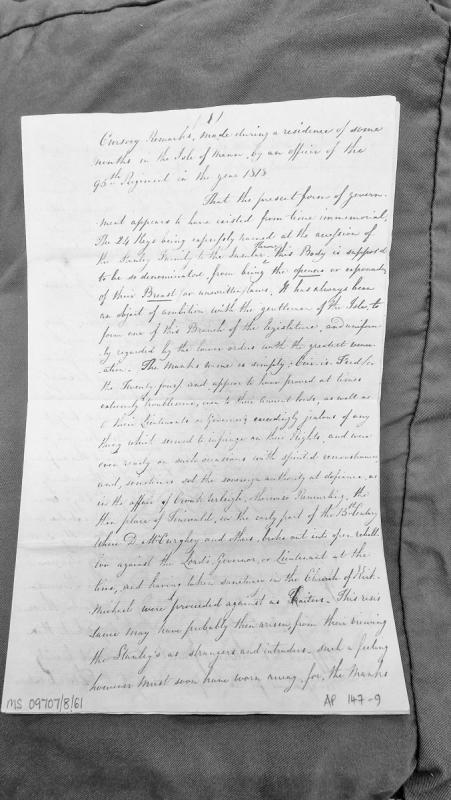 1
Cursory Remarks, made during a residence of some
months in the Isle of Mann, by an officer of the
96th Regiment in the year 1818
That the present form of govern-
ment appears to have existed from time immemorial,
The 24 Keys being expressly named at the accession of
the Stanley Family to the Insular Throne, this Body is supposed
to be so denominated, from being the openers or expounders
of their Breast (or unwritten) laws. It has always been
an object of ambition with the gentlemen of the Isle, to
form one of this Branch of the legislature, and uniform
ly regarded by the lower orders with the greatest vener
ation. The Manks name is simply,
the Twenty four) and appear to have proved at times
extremely troublesome, even to their Lords, as well as
to their Lieutenants or Governors exceedingly jealous of any
thing which seemed to infringe on their Rights, and were
ever ready on such occasions with spirited remonstrance
and, sometimes set the sovereign authority at defiance, as
in the affair of the
then place of Tinwald, in the early part of the 15th Century
when D. McCurghey and others, broke out into open rebell
ion against the Lord's Governor, or Lieutenant at the
time, and having taken sanctuary in the Church of Kirk
Michael were proceeded against as Traitors. This resis
tance may have probably then arisen, from their viewing
the Stanley's as strangers and intruders - such a feeling
however must soon have worn away, for, the Manks
MS 09707/8/61
AP 147-9